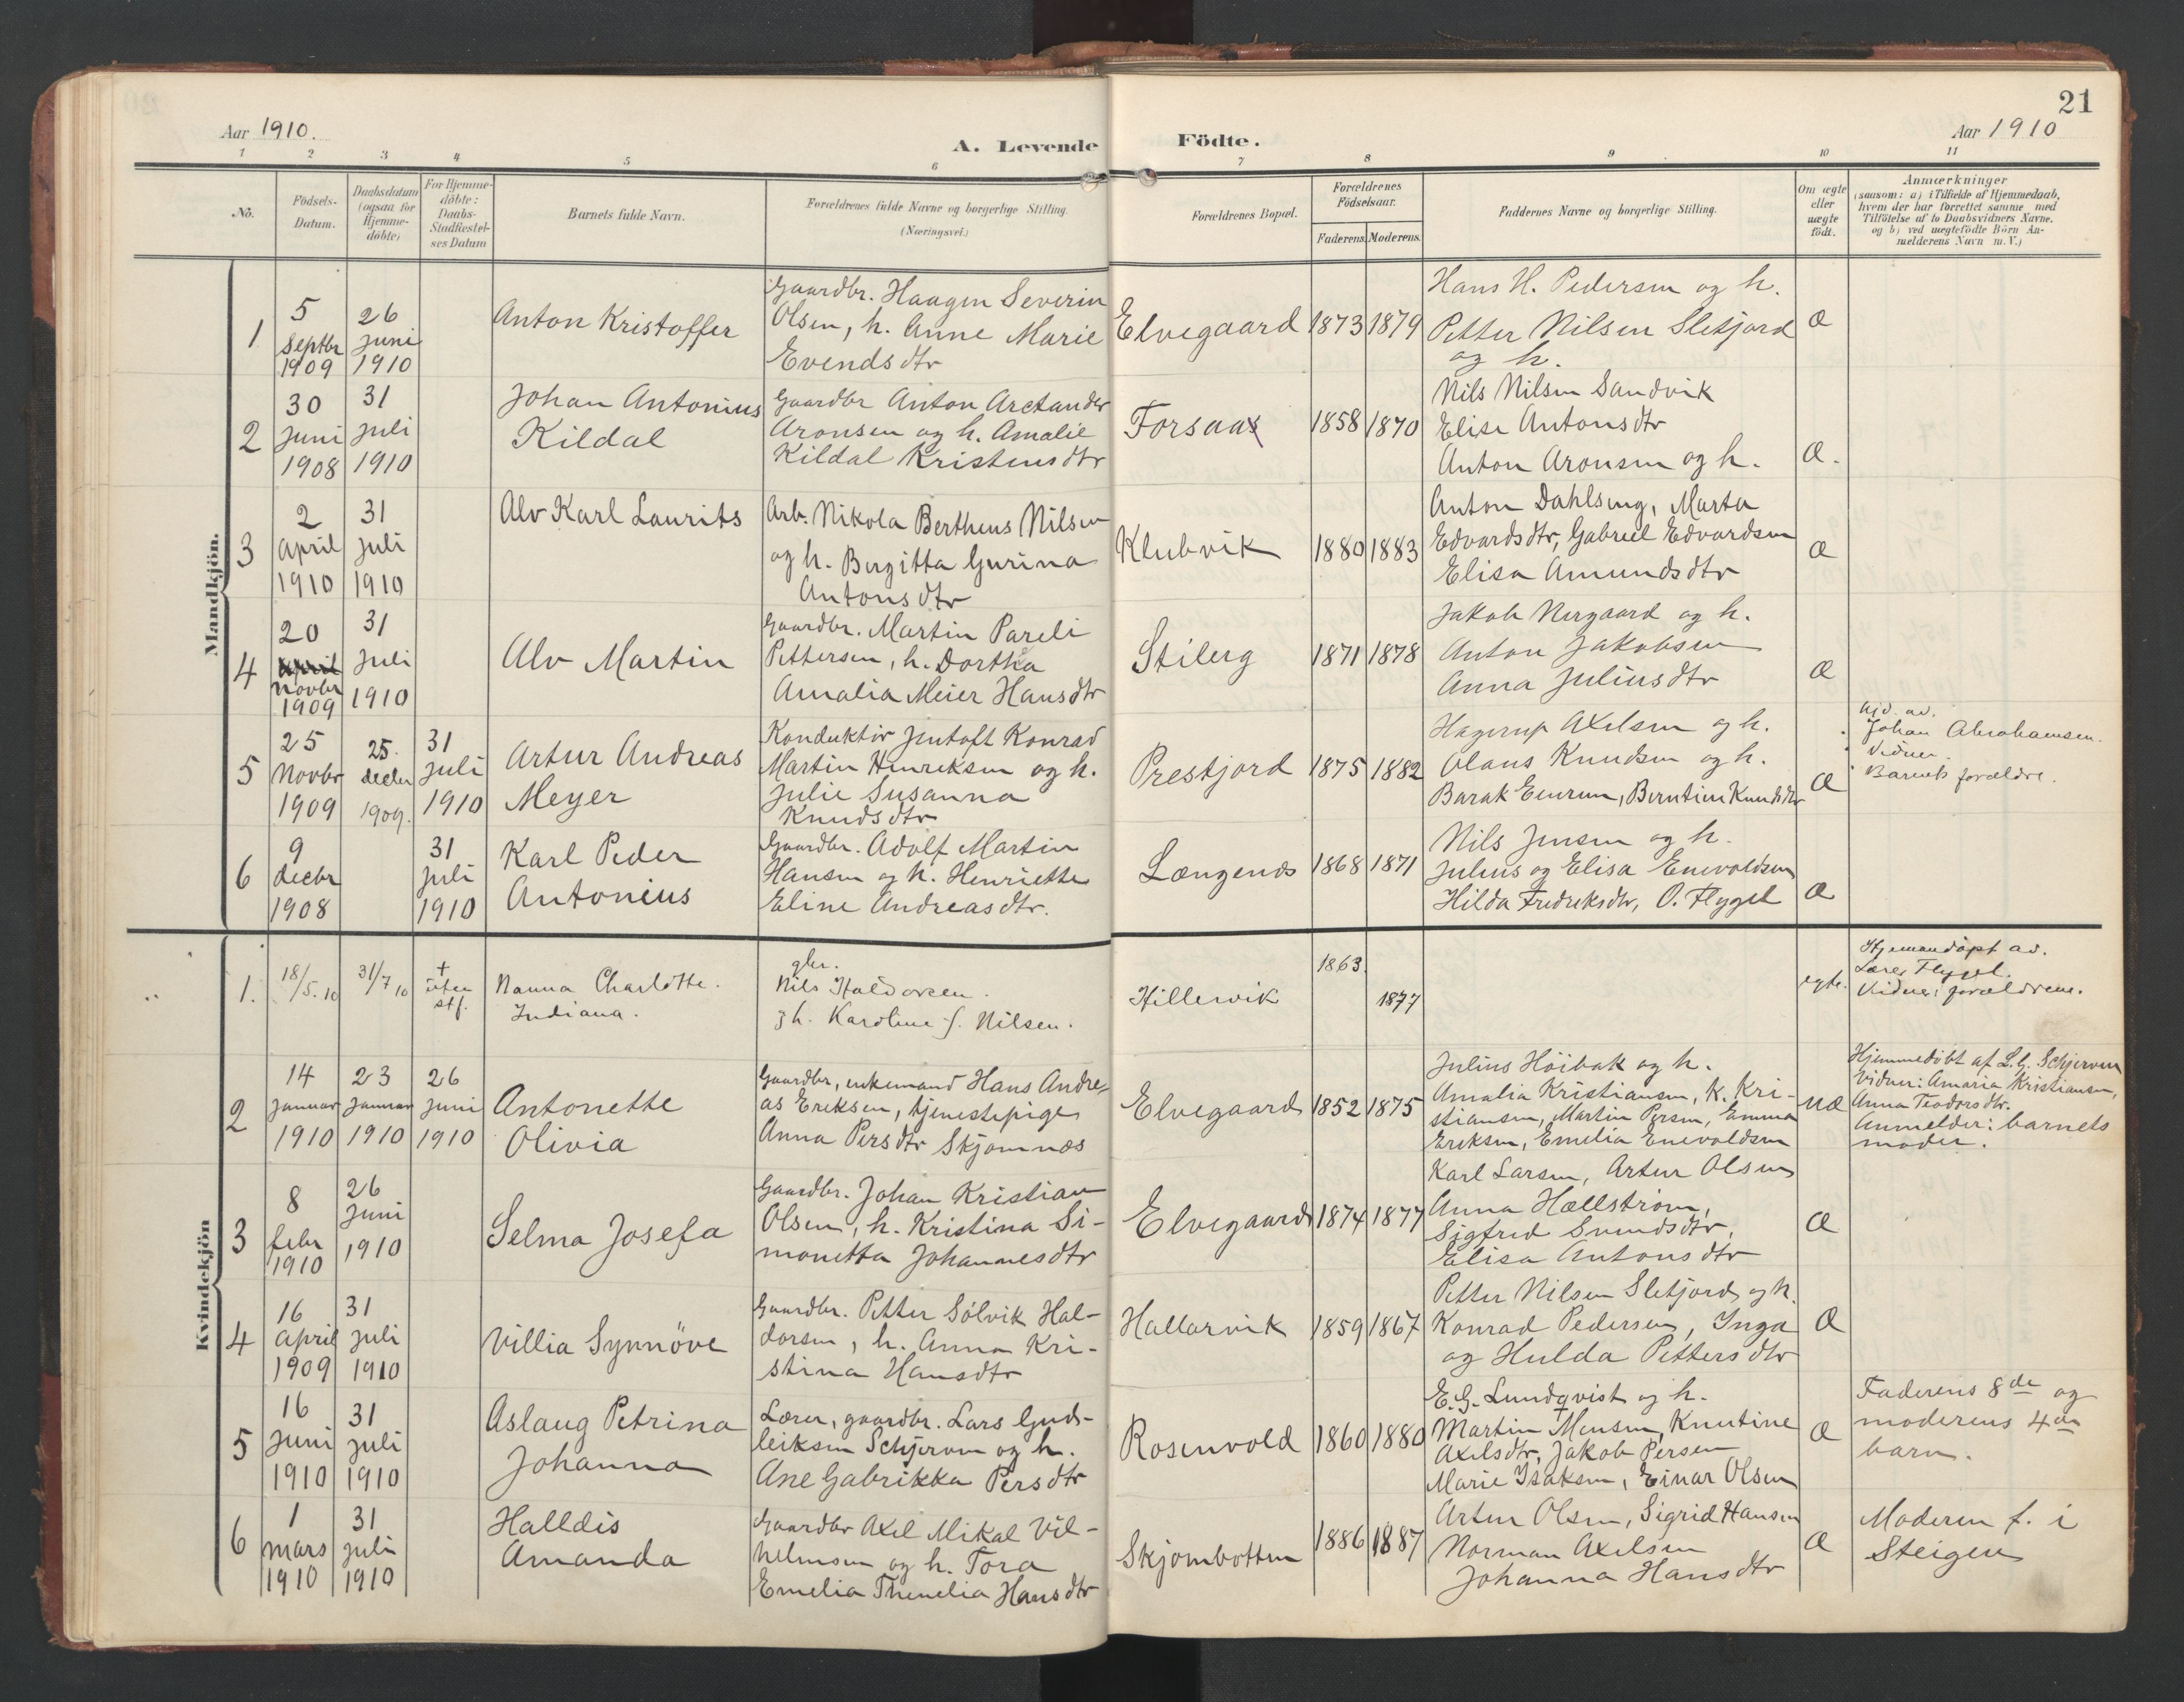 21
Aar 1910.
A. Levende Födte.
Aar 1910
1 2 3 4 5 6 7 8 9 10 11
No.
Födsels-
Datum.
Daabsdatum
(ogsaa for
Hjemme-
döbte)
For Hjemme-
döbte:
Daabs-
Stadfæstel-
ses Datum
Barnets fulde Navn.
Forældrenes fulde Navne og borgerlige Stilling.
(Næringsvei.)
Forældrenes Bopæl.
Forældrenes
Födselsaar.
Faderens. Moderens.
Faddernes Navne og borgerlige Stilling.
Om ægte
eller
uægte
födt.
Anmærkninger
(saasom: a) i Tilfælde af Hjemmedaab,
hvem der har forrettet samme med
Tilföielse af to Daabsvidners Navne.
og b) ved uægtefödte Börn An-
melderens Navn m. V.)
Mandkjön.
1
5
Septbr
1909
26
juni
1910
Anton Kristoffer
Gaardbr. Haagen Severin
Olsen, h. Anne Marie
Evendsdtr
Elvegaard
1873
1879
Hans H. Pedersen og h.
Petter Nilsen Sletjord
og h.
Æ
2
30
juni
1908
31
juli
1910
Johan Antonius
Kildal
Gaardbr Anton Arctander
Aronsen og h. Amalie
Kildal Kristensdtr
Forsaa
1858
1870
Nils Nilsen Sandvik
Elise Antonsdtr
Anton Aronsen og h.
Æ.
3
2
april
1910
31
juli
1910
Alv Karl Laurits
Arb. Nikola Bertheus Nilsen
og h. Bergitta Gurina
Antonsdtr
Klubvik
1880
1883
Anton Dahlseng, Marta
Edvardsdtr, Gabriel Edvardsen
Elisa Amundsdtr
Æ
4
20
april
novbr
1909
31
juli
1910
Alv Martin
Gaardbr. Martin Pareli
Pettersen, h. Dorthea
Amalia Meier Hansdtr
Stiberg
1871
1878
Jakob Nergaard og h.
Anton Jakobsen
Anna Juliusdtr
Æ
5
25
Novbr
1909
25.
decbr
1909.
31
juli
1910
Artur Andreas
Meyer
Konduktør Jentoft Konrad
Martin Henriksen og h.
Julie Susanna
Knudsdtr
Prestjord
1875
1882
Hagerup Axelsen og h.
Olaus Knudsen og h.
Barak Enersen, Berntine Knudsdtr
Æ
Hjd. av.
Johan Abrahamsen.
Vidner
Barnets forældre.
6
9
decbr
1908
31
juli
1910
Karl Peder
Antonius
Gaardbr. Adolf Martin
Hansen og h. Henriette
Eline Andreasdtr.
Længenes
1868
1871
Nils Jensen og h.
Julius og Elisa Enevoldsen
Hilda Fredriksdtr, O. Flygel
Æ
Kvindekjön
1.
18/5.10
31/7 10
+
uten
stf.
Nanna Charlotte.
Indiana.
gbr.
Nils Haldorsen.
og h. Karoline f. Nilsen.
Hillervik
1863.
1877
egte.
Hjemmedøpt av.
Lærer Flygel.
Vidner: forældrene.
2
14
januar
1910
23
januar
1910
26
juni
1910
Antonette
Olivia
Gaardbr, enkemand Hans Andre-
as Eriksen, tjenestepige
Anna Persdtr Skjomnæs
Elvegaard
1852
1875
Julius Høibak og h.
Amalia Kristiansen, K. Kri-
stiansen, Martin Persen, Emma
Eriksen, Emelia Enevoldsen
UÆ
Hjemmedøbt af L.G. Schjerven
Vidner: Amaria Kristiansen,
Anna Teodorsdtr.
Anmelder: barnets
moder.
3
8
febr
1910
26
juni
1910
Selma Josefa
Gaardbr. Johan Kristian
Olsen, h. Kristina Si-
monetta Johannesdtr
Elvegaard
1874
1877
Karl Larsen, Artur Olsen
Anna Hællstrøm,
Sigfrid Svendsdtr,
Elisa Antonsdtr
Æ
4
16
april
1909
31
juli
1910
Villia Synnöve
Gaardbr. Petter Sølvik Hal-
dorsen, h. Anna Kri-
stina Hansdtr
Hallarvik
1859
1867
Petter Nilsen Sletjord og h.
Konrad Pedersen, Inga
og Hulda Pettersdtr
Æ
5
16
juni
1910
31
juli
1910
Aslaug Petrina
Johanna
Lærer, gaardbr. Lars Guds-
leiksen Schjerven og h.
Ane Gabrikka Persdtr
Rosenvold
1860
1880
E.G. Lundqvist og h.
Martin Monsen, Knutine
Axelsdtr, Jakob Persen
Marie Isaksen, Einar Olsen
Æ
Faderens 8de og
moderens 4de
barn.
6
1
mars
1910
31
juli
1910
Halldis
Amanda
Gaardbr Axel Mikal Vil-
helmsen og h. Tora
Emelia Thenelia Hansdtr
Skjombotten
1886
1887
Artur Olsen, Sigrid Hansen
Norman Axelsen
Johanna Hansdtr
Æ
Moderen f. i
Steigen